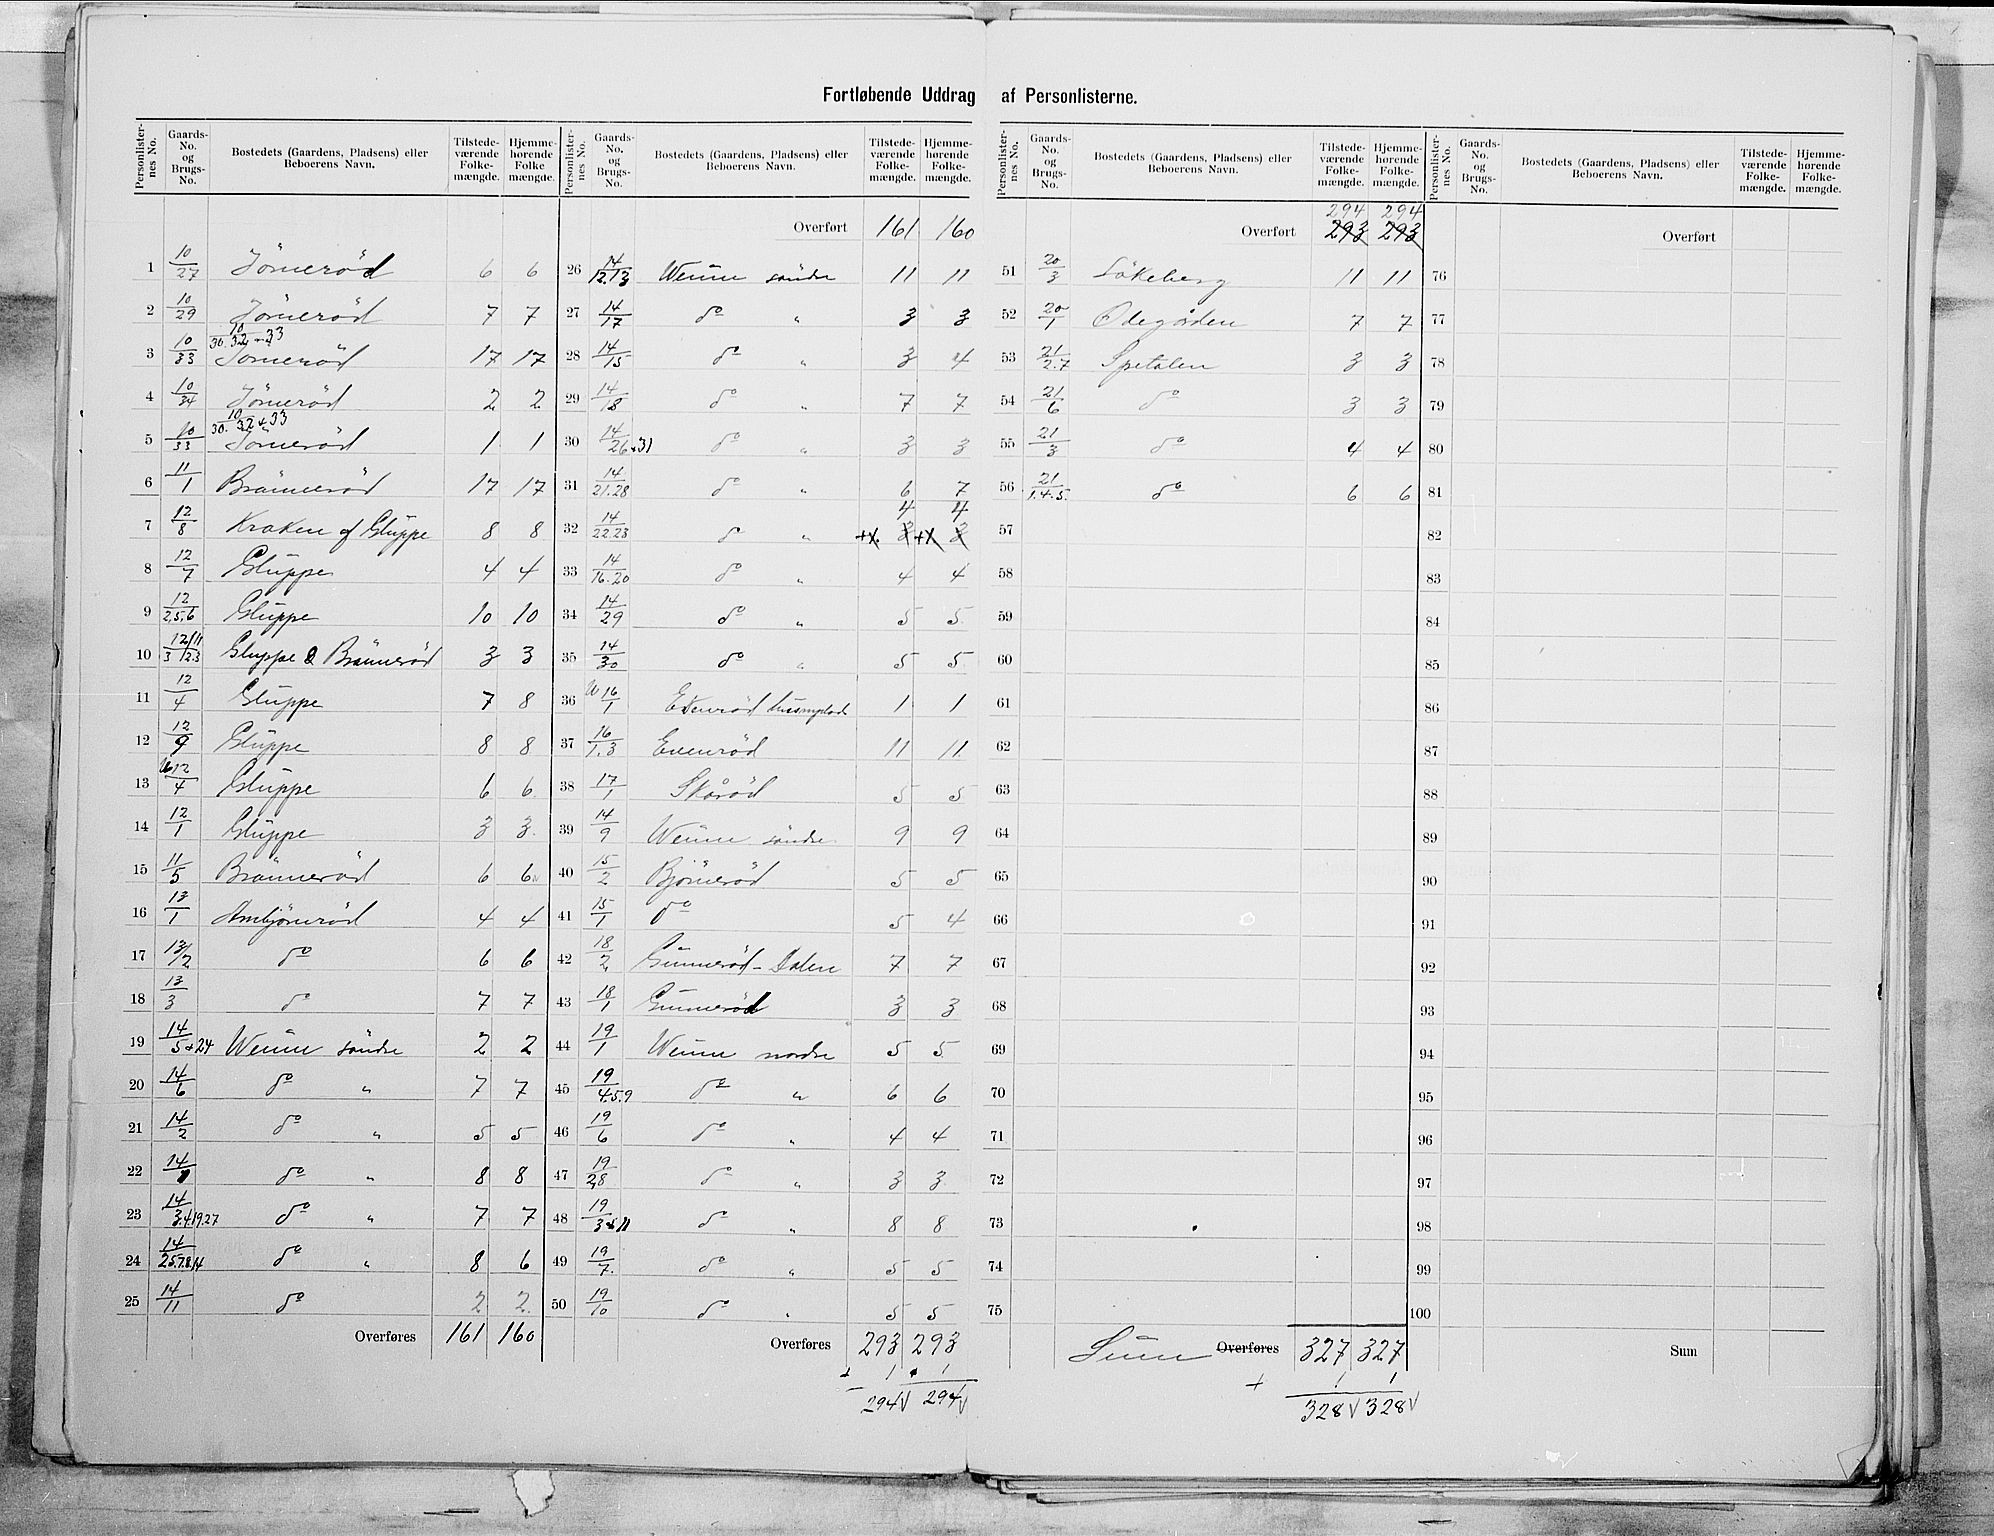 Fortløbende Uddrag af Personlisterne.
Personlisternes No. Gaards-No. og Brugs-No. Bostedets (Gaardens, Pladsens) eller Beboerens Navn. Tilstedeværende Folkemængde. Hjemmehørende Folkemængde.
1 10/27 Jömeröd 6 6
2 10/29 Jömeröd 7 7
10/30.32 & 33
3 10/33 Jömeröd 17 17
4 10/34 Jömeröd 2 2
10/30.32 & 33
5 10/33 Jömeröd 1 1
6 11/1 Brönneröd 17 17
7 12/8 Kraken af Gluppe 8 8
8 12/7 Gluppe 4 4
9 12/2,5.6 Gluppe 10 10
10 12/3 11/2.3 Gluppe & Brönneröd 3 3
11 12/4 Gluppe 7 8
12 12/9 Gluppe 8 8
13 U 12/4 Gluppe 6 6
14 12/1 Gluppe 3 3
15 11/5 Brönneröd 6 6
16 13/1 Ambjöneröd 4 4
17 13/2 do 6 6
18 13/3 do 7 7
19 14/5 & 24 Weum söndre 2 2
20 14/6 do " 7 7
21 14/2 do " 5 5
22 14/1 do " 8 8
23 14/3.4.19.27 do " 7 7
24 14/25.7.8.14 do " 8 6
25 14/11 do 2 2
Overføres 161 160
Personlisternes No. Gaards-No. og Brugs-No. Bostedets (Gaardens, Pladsens) eller Beboerens Navn. Tilstedeværende Folkemængde. Hjemmehørende Folkemængde.
Overført 161 160
26 14/12.13 Weum söndre 11 11
27 14/17 do " 3 3
28 14/15 do " 3 4
29 14/18 do " 7 7
30 14/26 & 31 do " 3 3
31 14/21.28 do " 6 7
4 4
32 14/22.23 do " +1. 3 +1. 3
33 14/16.20 do " 4 4
34 14/29 do " 5 5
35 14/30 do " 5 5
36 U 16/1 Evenröd husmplads 1 1
37 16/1.3 Evenröd 11 11
38 17/1 Skåröd 5 5
39 14/9 Weum söndre 9 9
40 15/2 Bjömeröd 5 5
41 15/1 do 5 4
42 18/2 Gunneröd - Dalen 7 7
43 18/1 Gunneröd 3 3
44 19/1 Weum nordre 5 5
45 19/4.5.9 do " 6 6
46 19/6 do " 4 4
47 19/2.8 do " 3 3
48 19/3 & 11 do " 8 8
49 19/7. do " 5 5
50 19/10 do " 5 5
Overføres 293 293
+ 1 + 1
294 294
Personlisternes No. Gaards-No. og Brugs-No. Bostedets (Gaardens, Pladsens) eller Beboerens Navn. Tilstedeværende Folkemængde. Hjemmehørende Folkemængde.
294 294
Overført 293 293
51 20/3 Lökeberg 11 11
52 20/1 Ödegården 7 7
53 21/2.7 Spetalen 3 3
54 21/6 do 3 3
55 21/3 do 4 4
56 21/1.4.5. do 6 6
57
58
59
60
61
62
63
64
65
66
67
68
69
70
71
72
73
74
75
Sum Overføres 327 327
+ 1 1
328 328
Personlisternes No. Gaards-No. og Brugs-No. Bostedets (Gaardens, Pladsens) eller Beboerens Navn. Tilstedeværende Folkemængde. Hjemmehørende Folkemængde.
Overført
76
77
78
79
80
81
82
83
84
85
86
87
88
89
90
91
92
93
94
95
96
97
98
99
100
Sum